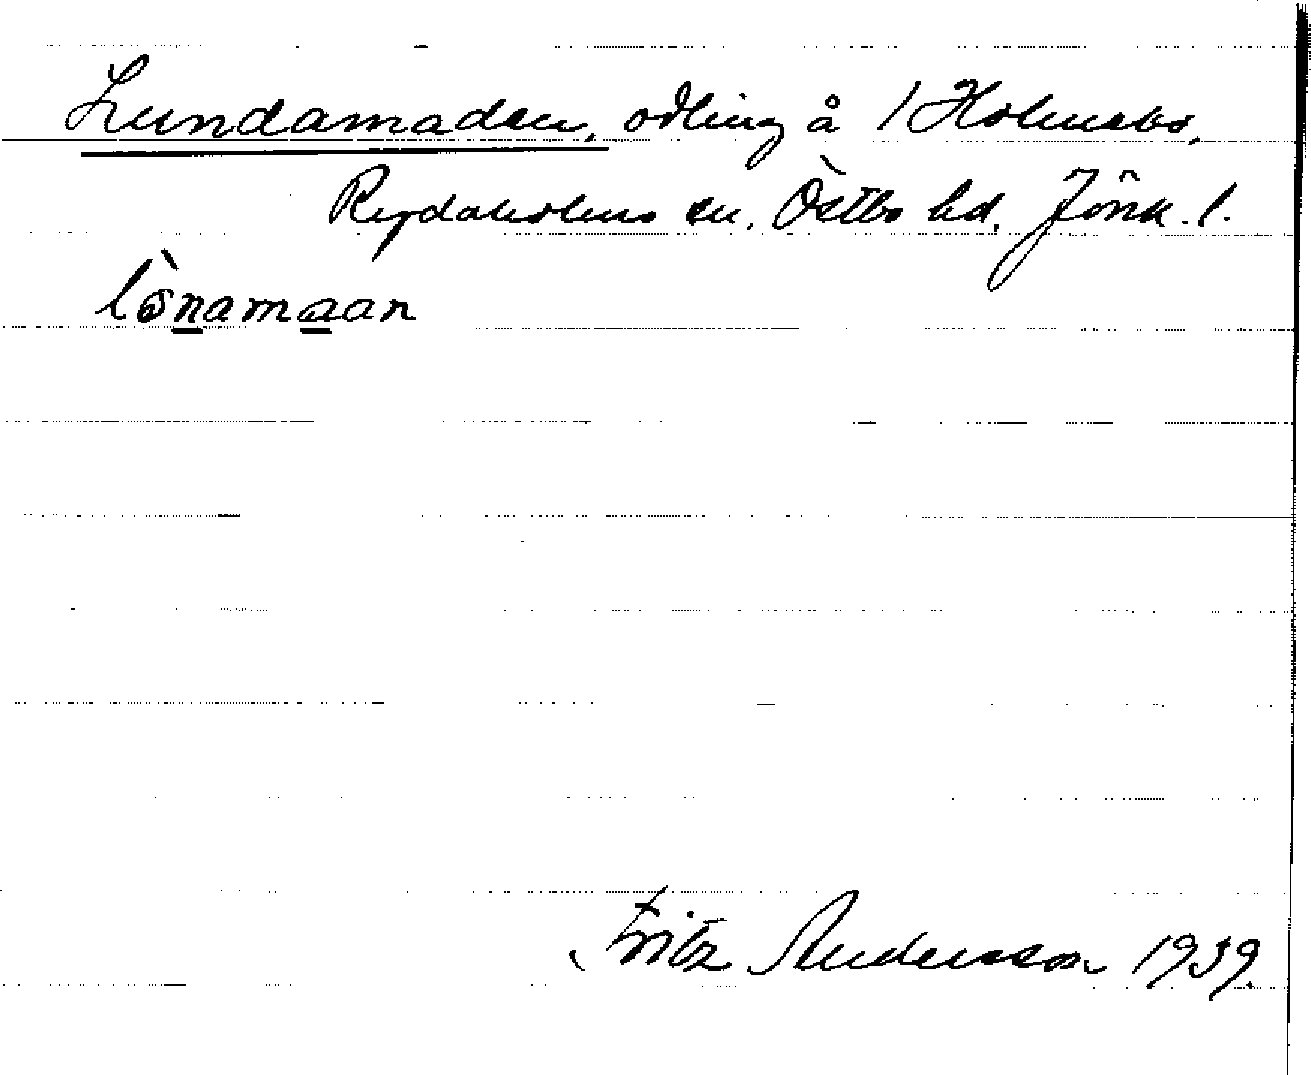 Lundamaden, odling å 1 Holmabo,
Rydaholms sn, Östbo hd, Jönk. l.
lònamaan
Fritz Andersson 1939.